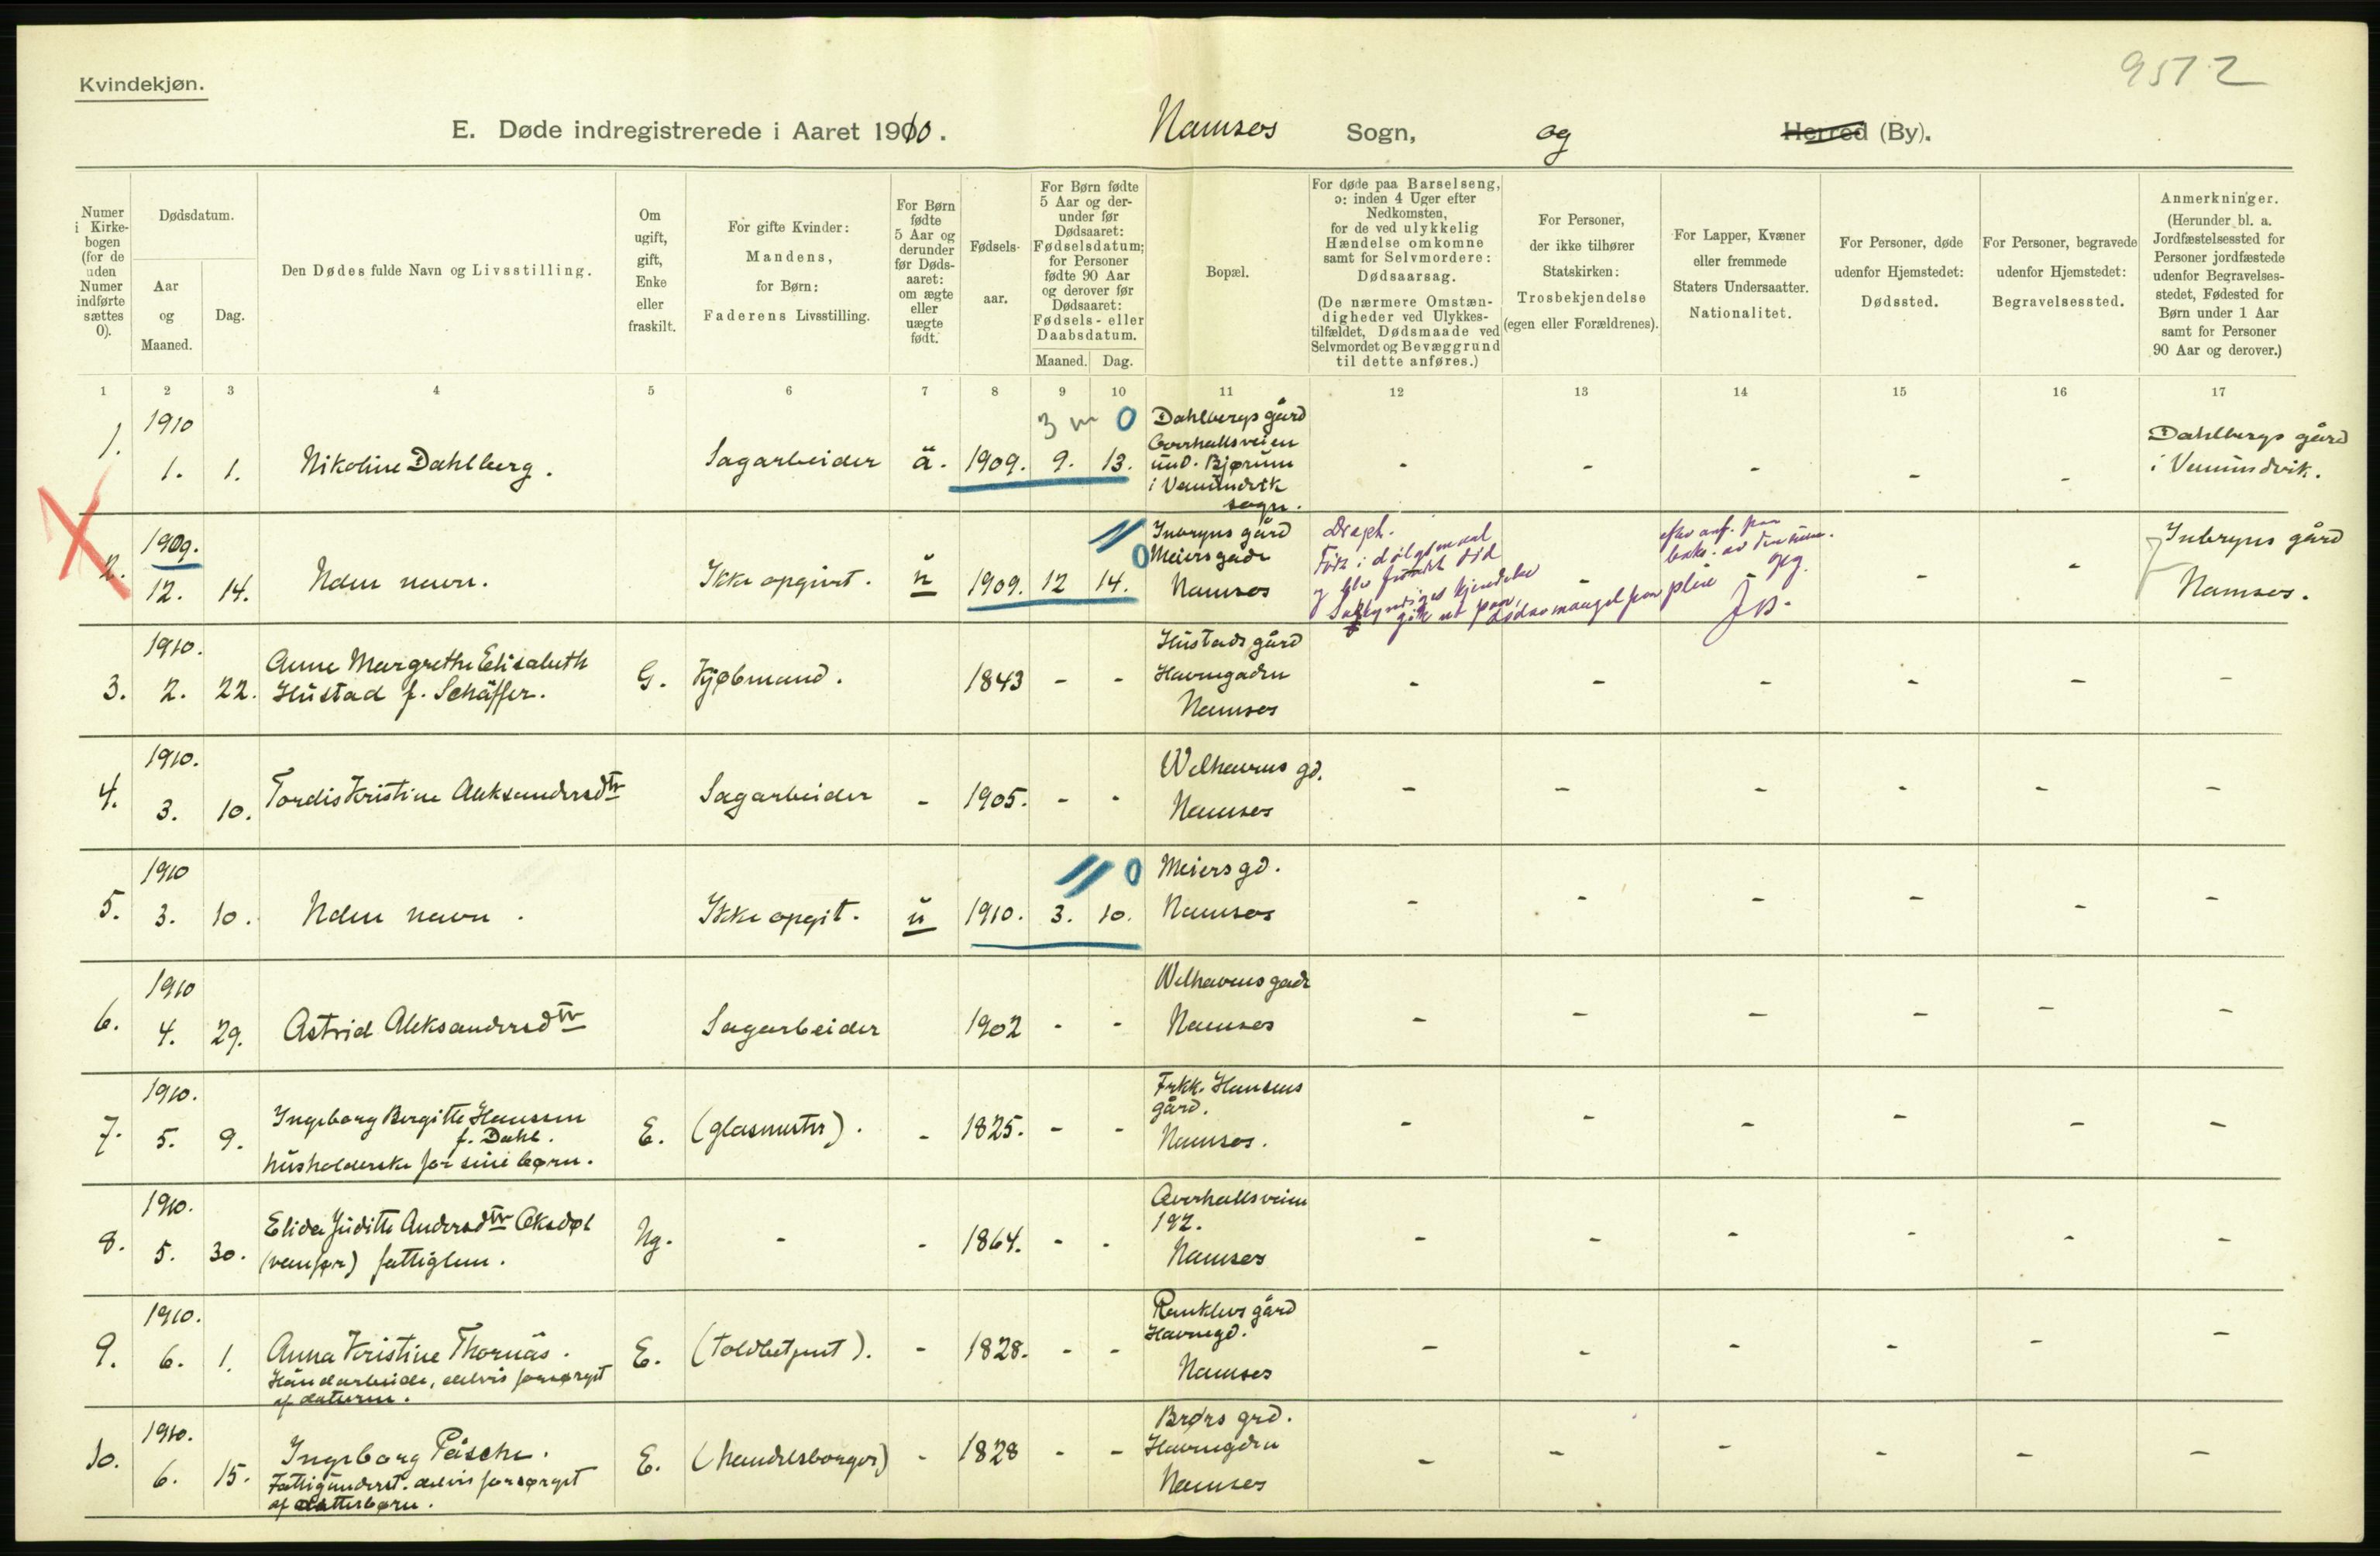 Kvindekjøn.
9572
E. Døde indregistrerede i Aaret 1910. Namsos Sogn, og Herred (By).
Numer i Kirkebogen (for de uden Numer indførte sættes 0).
Dødsdatum.
Aar og Maaned.
Dag.
Den Dødes fulde Navn og Livsstilling.
Om ugift, gift, Enke eller fraskilt.
For gifte Kvinder: Mandens, for Børn: Faderens Livsstilling.
For Børn fødte 5 Aar og derunder før Dødsaaret: om ægte eller uægte født.
Fødselsaar.
For Børn fødte 5 Aar og derunder før Dødsaaret: Fødselsdatum; for Personer fødte 90 Aar og derover før Dødsaaret: Fødsels- eller Daabsdatum.
Maaned. Dag.
Bopæl.
For døde paa Barselseng, ɔ: inden 4 Uger efter Nedkomsten, for de ved ulykkelig Hændelse omkomne samt for Selvmordere: Dødsaarsag.
(De nærmere Omstændigheder ved Ulykkestilfældet, Dødsmaade ved Selvmordet og Bevæggrund til dette anføres.)
For Personer, der ikke tilhører Statskirken: Trosbekjendelse (egen eller Forældrenes).
For Lapper, Kvæner eller fremmede Staters Undersaatter. Nationalitet.
For Personer, døde udenfor Hjemstedet: Dødssted.
For Personer, begravede udenfor Hjemstedet: Begravelsessted.
Anmerkninger. (Herunder bl. a. Jordfæstelsessted for Personer jordfæstede udenfor Begravelsesstedet, Fødested for Børn under 1 Aar samt for Personer 90 Aar og derover.)
1 2 3 4 5 6 7 8 9 10 11 12 13 14 15 16 17
3 m 0
1. 1910 1. 1. Nikoline Dahlberg. Sagarbeider ä. 1909. 9. 13. Dahlbergs gård Overhallsveien und. Bjørum i Vemundvik sogn. - - - - - Dahlbergs gård i Vemundvik.
X
2. 1909. 12. 14. Uden navn. Ikke opgivet. ŭ 1909. 12 14. 0 Meiersgade Namsos Dræpt. Født i dølgsmaal og blev fundet død - - - - gård Namsos.
3. 1910. 2. 22. Anne Margrethe Elisabeth Hustad f. Schäffer. G. Kjøbmand. 1843 - - Hustads gård Havnegaden Namsos - - - - - -
4. 1910. 3. 10. Tordis Kristine Aleksandersdtr Sagarbeider - 1905. - - Welhavens gd. Namsos - - - - - -
5. 1910 3. 10. Uden navn. Ikke opgit. ŭ 1910. 3. 10. 0 Meiers gd. Namsos - - - - - -
6. 1910 4. 29. Astrid Aleksandersdtr Sagarbeider 1902 - - Welhavens gade Namsos - - - - - -
7. 1910. 5. 9. Ingeborg Bergitte Hanssen f. Dahl. husholderske for sine børn. E. (glasmester). - 1825. - - Frkk. Hansens gård. Namsos. - - - - - -
8. 1910. 5. 30. Elida Juditte Andersdtr (vanfør) fattiglem. Ug. - - 1864. - - Overhallsveien 192. Namsos - - - - - -
9. 1910. 6. 1. Anna Kristine Thornäs. Håndarbeide, delvis forsørget af datteren. E. (toldbetjent). - 1828. - - gård Havnegd. Namsos - - - - - -
10. 1910. 6. 15. Ingeborg Påsche. Fattigunderst. delvis forsørget af datterbørn. E. (handelsborger) - 1828 - - Brørs grd. Havnegden Namsos - - - - - -